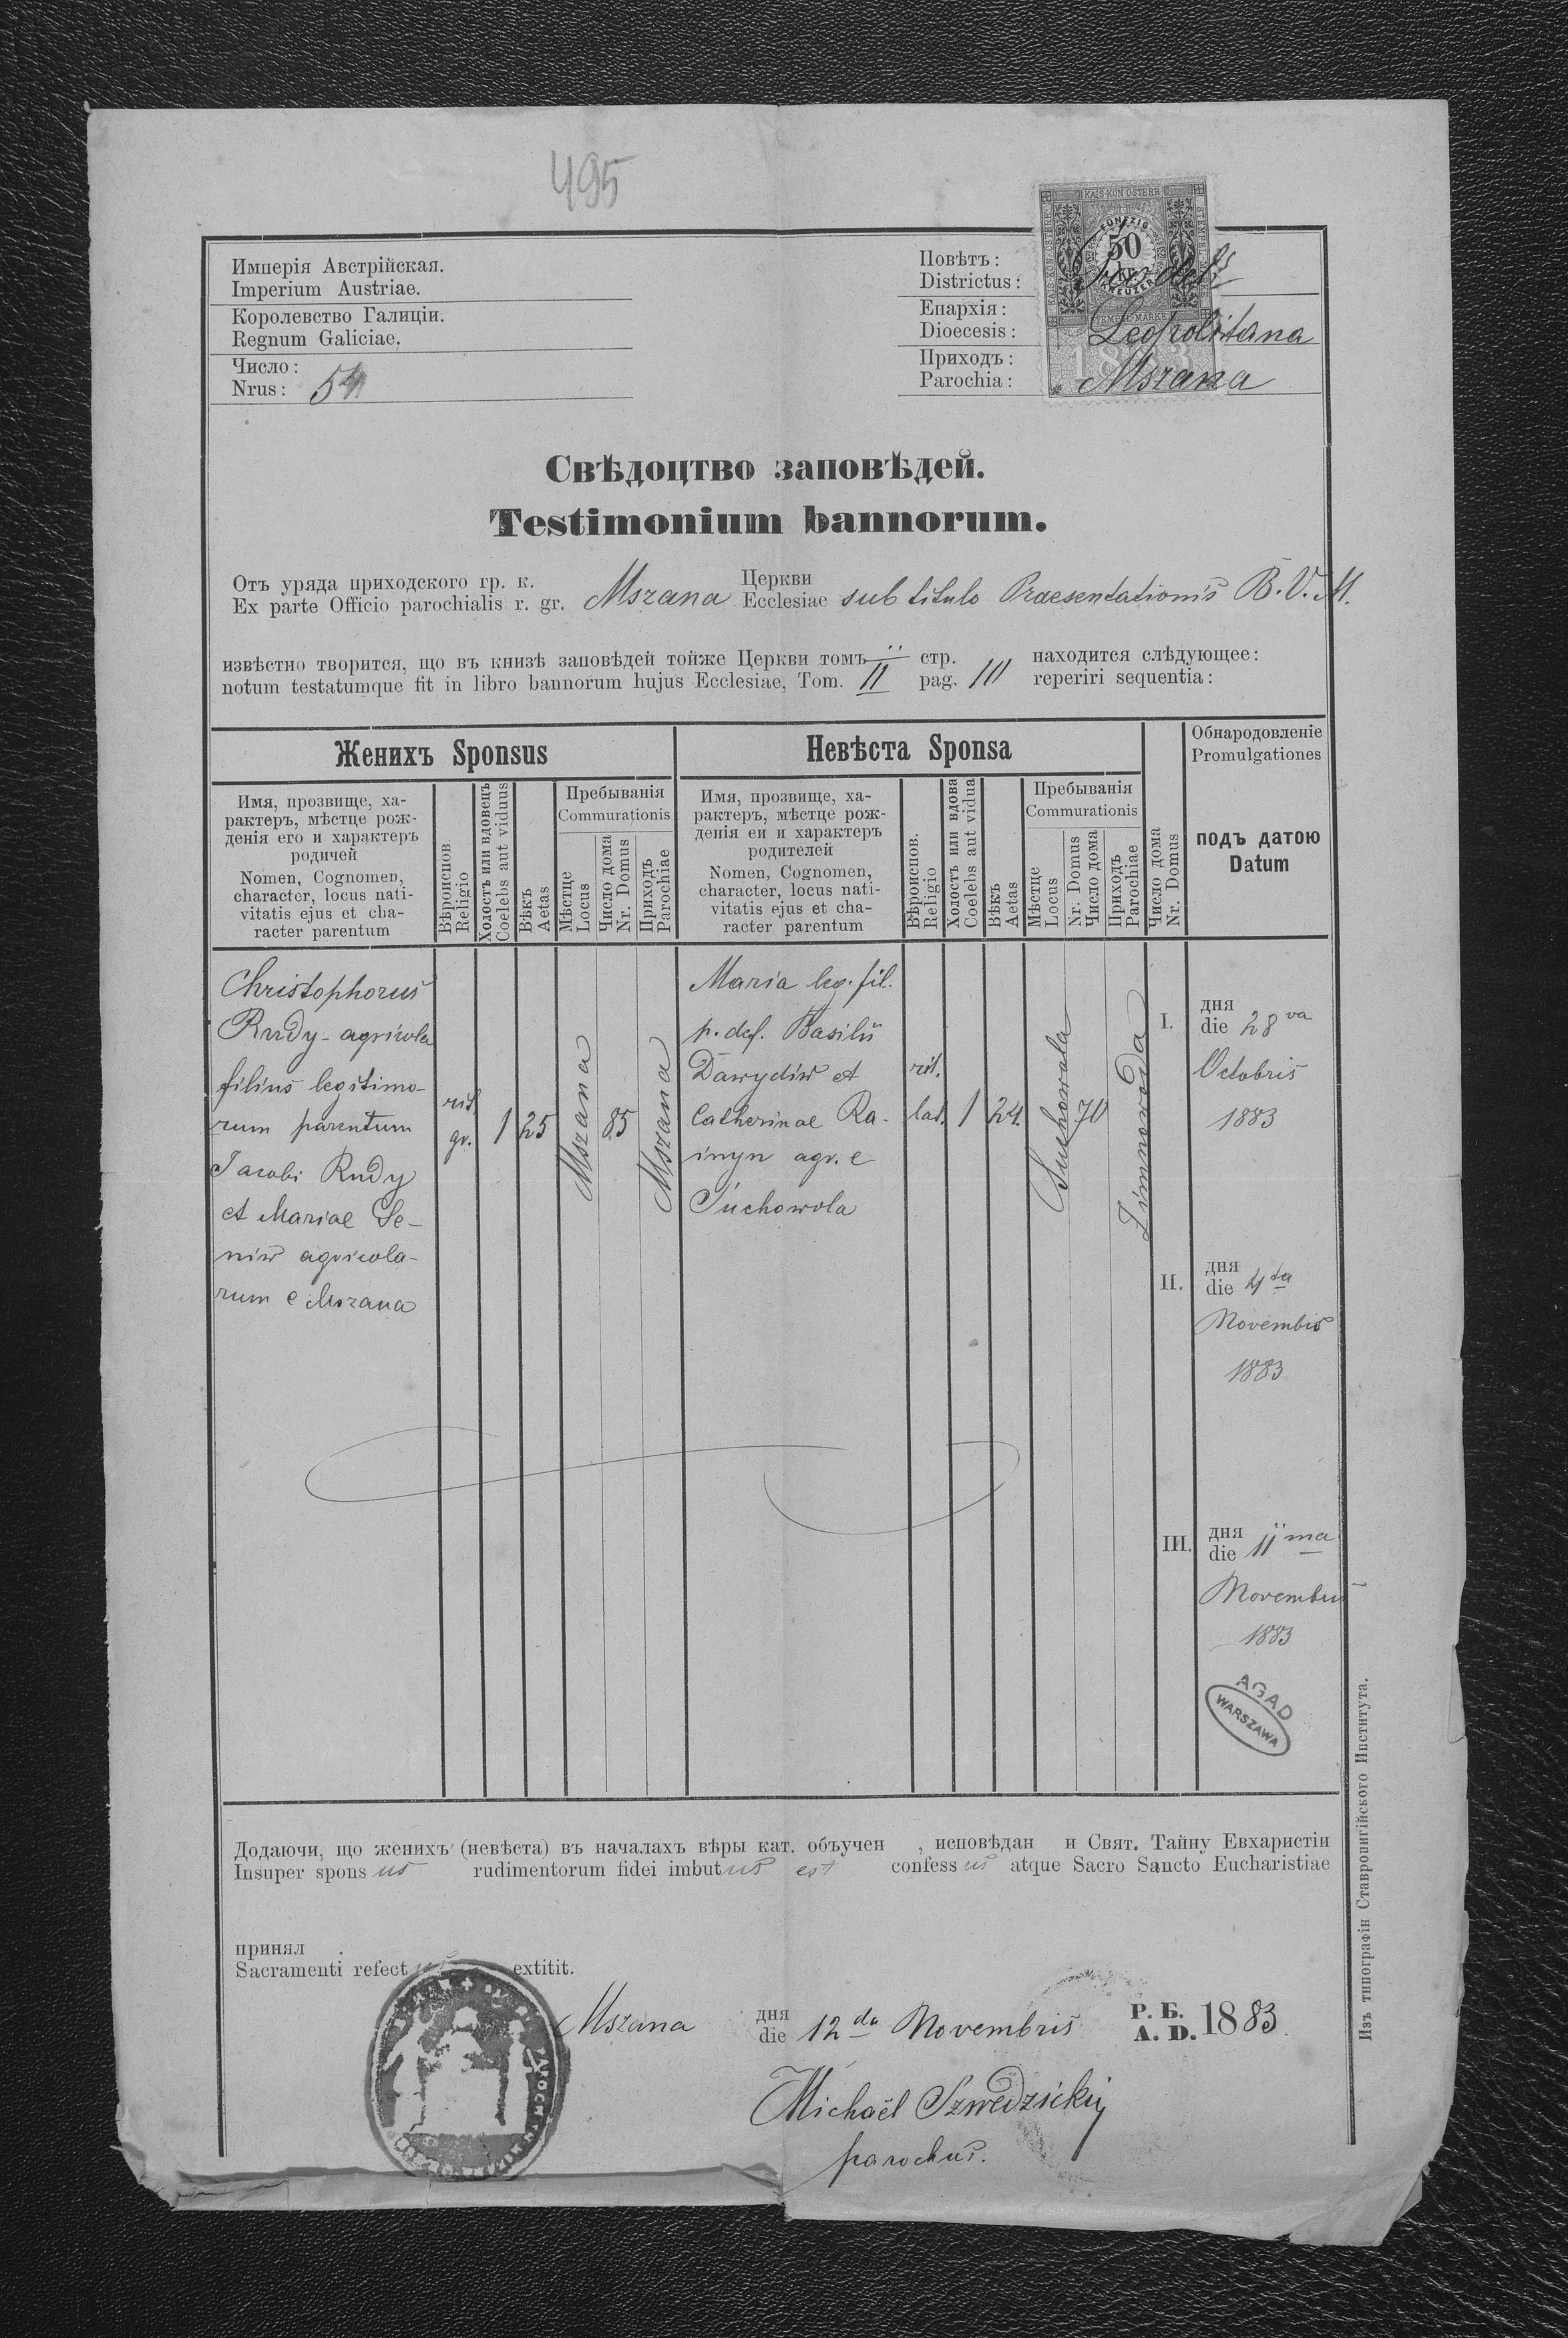 495
KAIS·KÖN·ÖSTERR
FÜNFZIG
50
KREUZER
STEMPEL MARKE
1883
Имперія Австрійская.
Imperium Austriae.
Королевство Галиціи.
Regnum Galiciae.
Число:
Nrus: 54
Повѣтъ:
Districtus:
Епархія:
Dioecesis: Leopolitana
Приходъ:
Parochia: Mszana
Свѣдоцтво заповѣдей.
Testimonium bannorum.
Отъ уряда приходского гр. к. Церкви
Ex parte Officio parochialis r. gr. Mszana Ecclesiae sub titulo Praesentationis B. V. M.
извѣстно творится, що въ книзѣ заповѣдей тойже Церкви томъ стр. находится слѣдующее:
notum testatumque fit in libro bannorum hujus Ecclesiae, Tom. II pag. 111 reperiri sequentia:
Женихъ Sponsus
Невѣста Sponsa
Обнародовленіе
Promulgationes
Имя, прозвище, ха-
рактеръ, мѣстце рож-
денія его и характеръ
родичей
Nomen, Cognomen,
character, locus nati-
vitatis ejus et cha-
racter parentum
Вѣроиспов.
Religio
Холостъ или вдовецъ
Coelebs aut viduus
Вѣкъ
Aetas
Пребыванія
Commurationis
Мѣстце
Locus
Число дома
Nr. Domus
Приходъ
Parochiae
Имя, прозвище, ха-
рактеръ, мѣстце рож-
денія еи и характеръ
родителей
Nomen, Cognomen,
character, locus nati-
vitatis ejus et cha-
racter parentum
Вѣроиспов.
Religio
Холостъ или вдова
Coelebs aut vidua
Вѣкъ
Aetas
Пребыванія
Commurationis
Мѣстце
Locus
Nr. Domus
Число дома
Приходъ
Parochiae
Число дома
Nr. Domus
подъ датою
Datum
Christophorus
Rudy - agricola
filius legitimo-
rum parentum
Jacobi Rudy
et Mariae Se-
niw agricola-
rum e Mszana
rit.
gr.
1
25
Mszana
85
Mszana
Maria leg. fil.
p. def. Basilii
Dawydiw et
Catherinae Ra-
inyn agr. e
Suchowola
rit.
lat.
1
24.
Suchowola
70
Zimnowoda
I.
дня
die 28va
Octobris
1883
II.
дня
die 4ta
Novembris
1883
III.
дня
die 11ma
Novembris
1883
AGAD
WARSZAWA
Додаючи, що женихъ (невѣста) въ началахъ вѣры кат. объучен , исповѣдан и Свят. Тайну Евхаристіи
Insuper sponsus rudimentorum fidei imbutus est confessus atque Sacro Sancto Eucharistiae
принял .
Sacramenti refectus extitit.
Mszana
дня
die 12da Novembris
Р. Б.
A. D. 1883
Michaël Szwedzickij
parochus.
Изъ типографіи Ставропигійского Института.